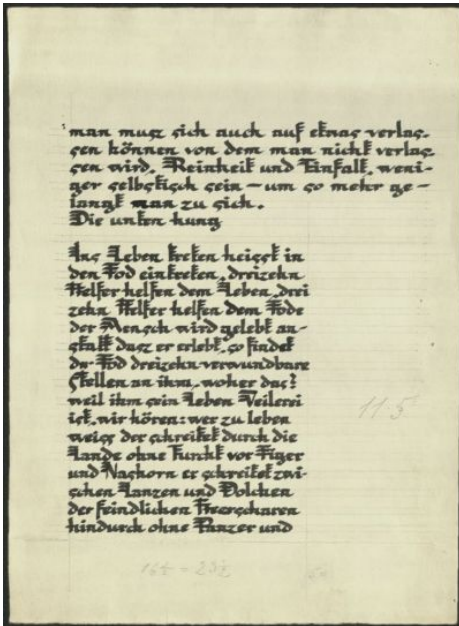 man musz sich auch auf etwas verlas-
sen können von dem man nicht verlas-
sen wird. Reinheit und Einfalt. weni-
ger selbstisch sein – um so mehr ge-
langt man zu sich.
Die unten hung
Ins Leben treten heisst in
den Tod eintreten. dreizehn
Helfer helfen dem Leben. drei
zehn Helfer helfen dem Tode
der Mensch wird gelebt an-
statt dasz er erlebt. so findet
der Tod dreizehn verwundbare
Stellen an ihm. woher das?
weil ihm sein Leben Teilerei
ist. wir hören: wer zu leben
weiss der schreitet durch die
Lande ohne Furcht vor Tiger
und Nashorn er schreitet zwi-
schen Lanzen und Dolchen
der feindlichen Heerscharen
hindurch ohne Panzer und
11·5